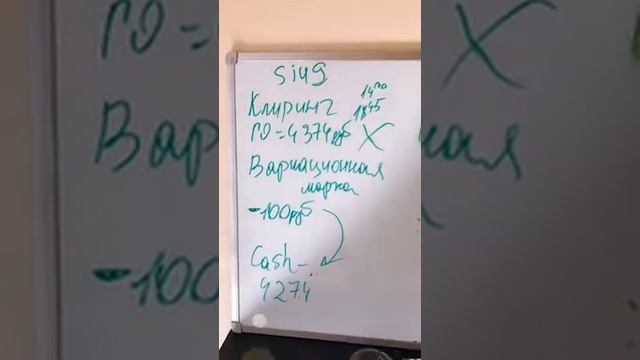 siu9
14⁰⁰
Клиринг 18⁴⁵
ГО = 4374руб X
Вариационная
маржа
-100руб
Cash -
4274